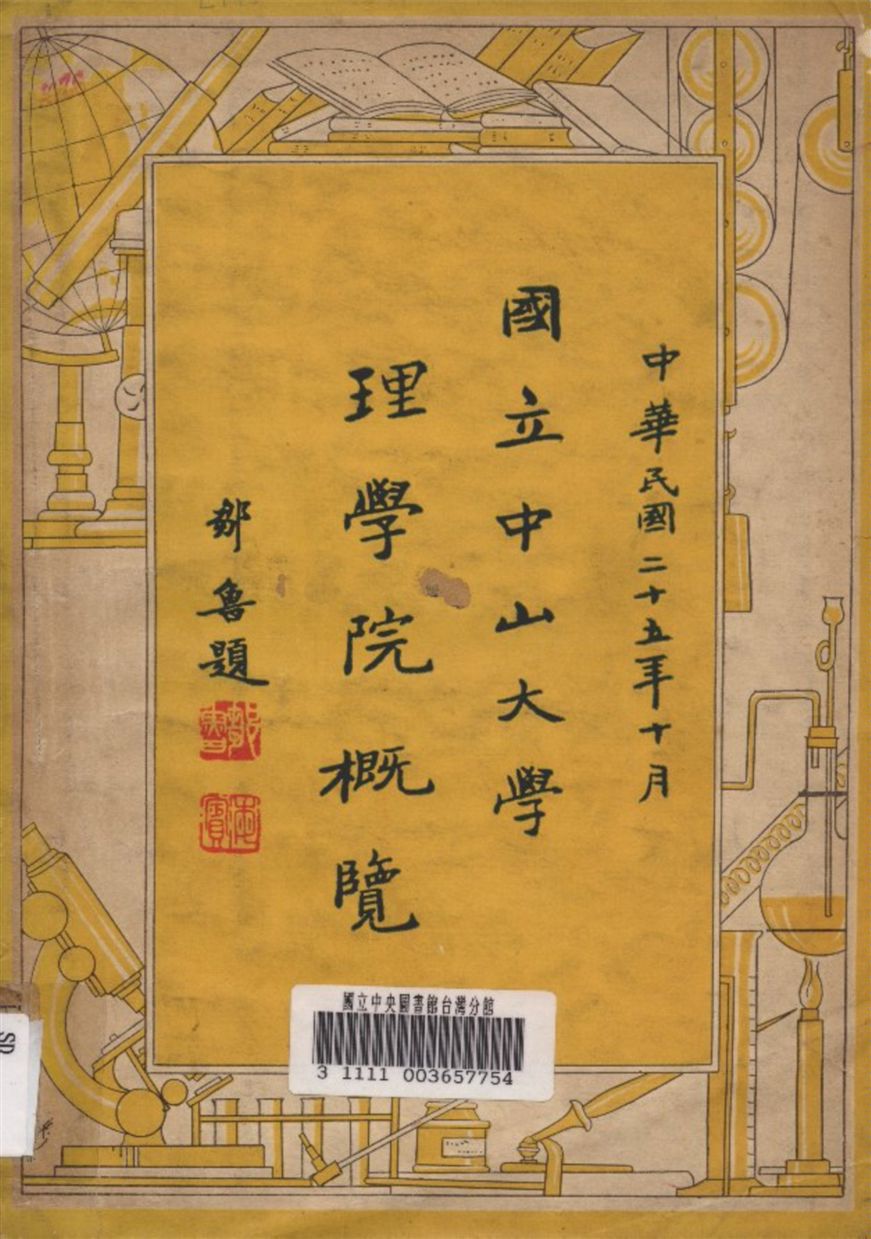 中華民國二十五年十月
國立中山大學
理學院概覽
鄒魯題
國立中央圖書館台灣分館
3 1111 003657754
SD